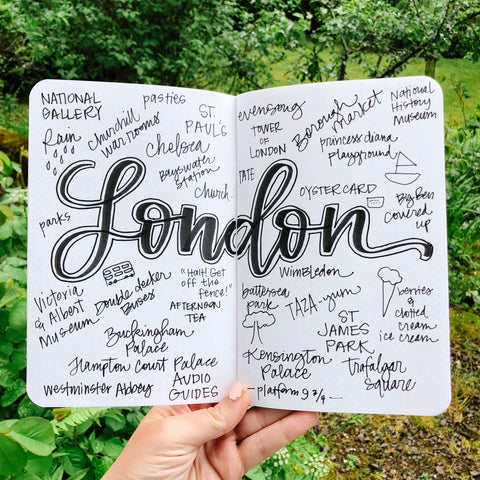 NATIONAL
GALLERY
pasties
ST.
PAUL'S
Rain
Churchill
war rooms
Chelsea
Bayswater
Station
Church
parks
evensong
TOWER
OF
LONDON
Borough
Market
National
History
Museum
princess diana
playground
TATE
OYSTER CARD
Big Ben
covered
up
London
Victoria
& Albert
Museum
Double decker
Buses
"Halt! Get
off the
fence!"
AFTERNOON
TEA
Buckingham
Palace
Hampton Court Palace
Westminster Abbey
AUDIO
GUIDES
WIMBLEDON
battersea
park
TAZA-yum
ST
JAMES
PARK
berries
&
clotted
cream
ice cream
Kensington
Palace
Trafalgar
Square
— platform 9 3/4 —